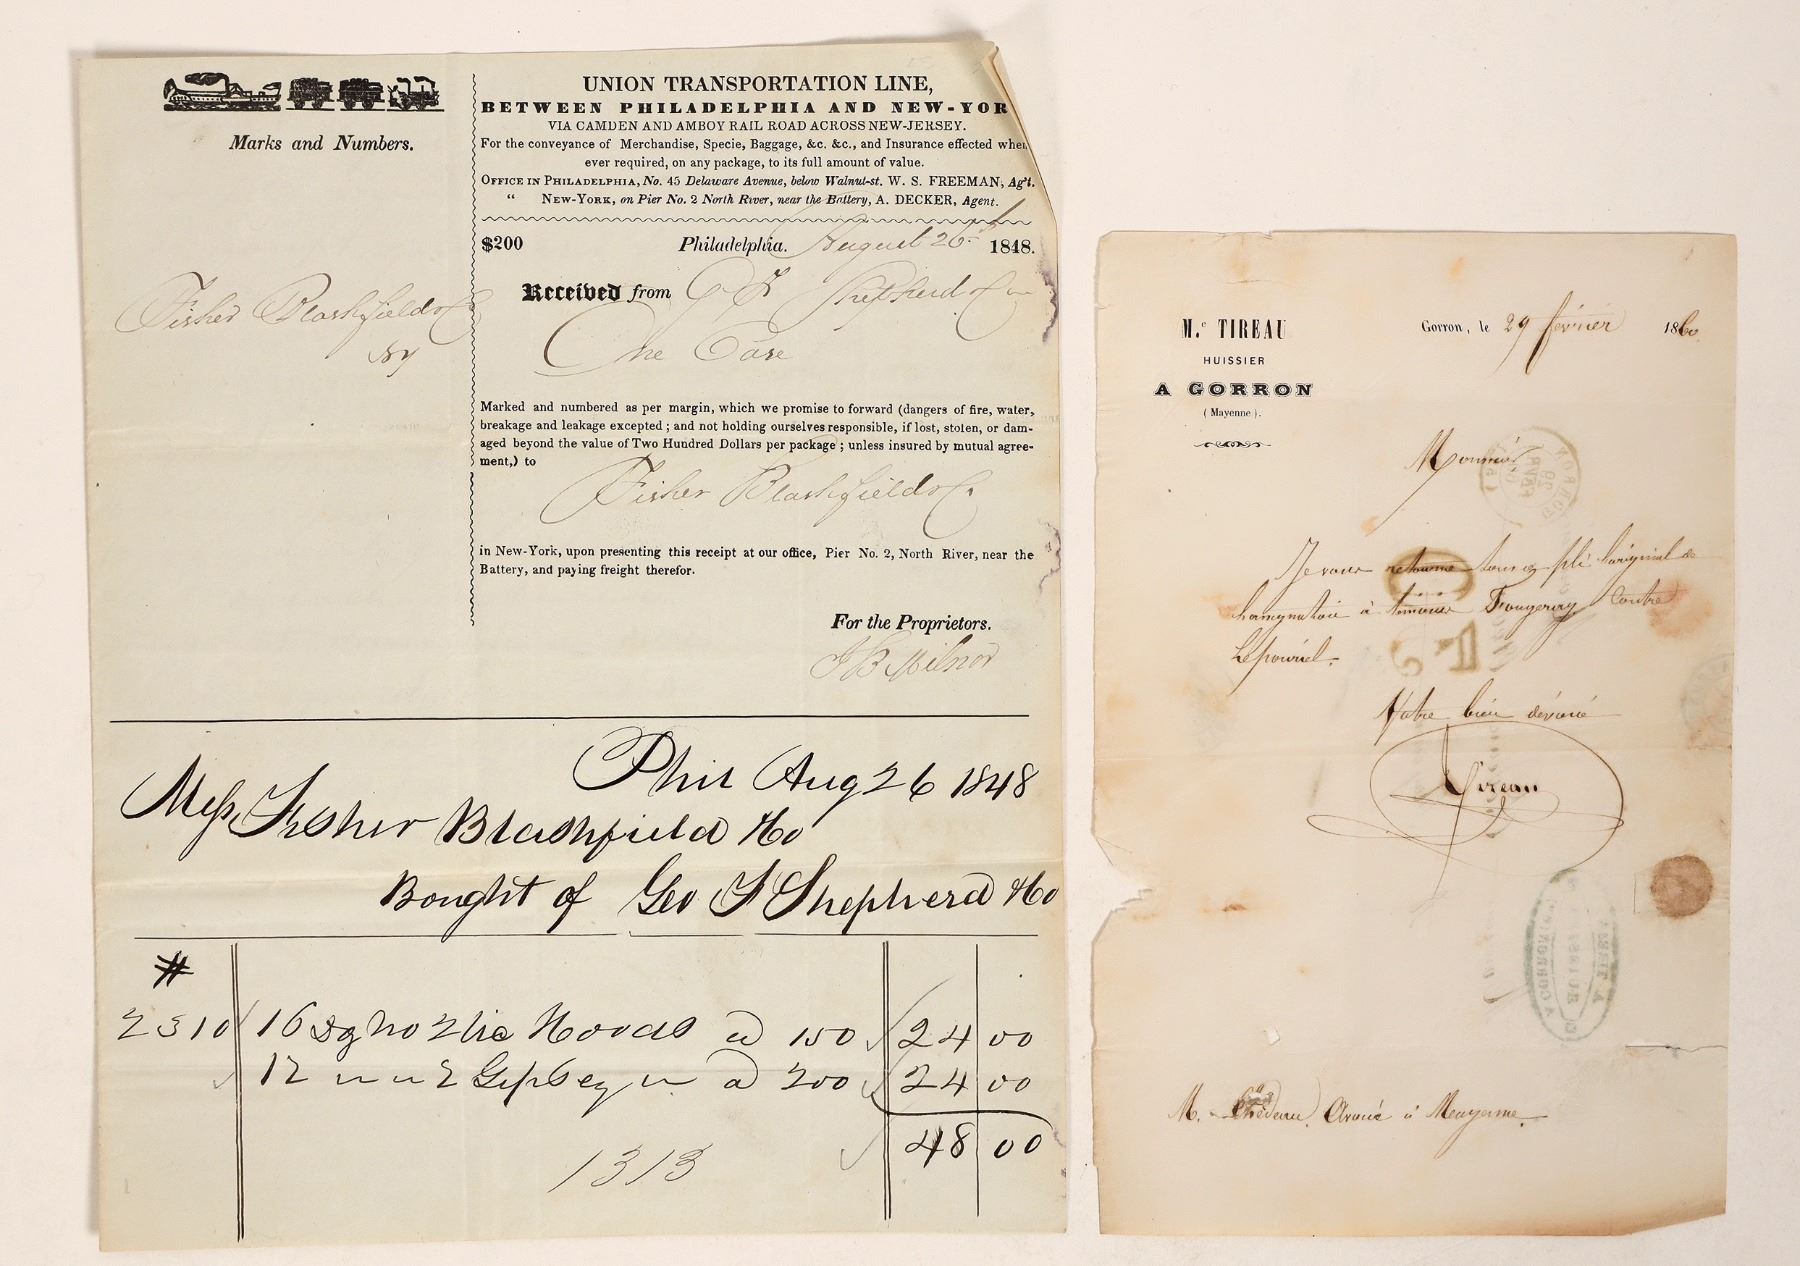 Marks and Numbers.
Fisher Blashfield & Co
NY
UNION TRANSPORTATION LINE,
BETWEEN PHILADELPHIA AND NEW-YOR
VIA CAMDEN AND AMBOY RAIL ROAD ACROSS NEW-JERSEY.
For the conveyance of Merchandise, Specie, Baggage, &c. &c., and Insurance effected when
ever required, on any package, to its full amount of value.
OFFICE IN PHILADELPHIA, No. 45 Delaware Avenue, below Walnut-st. W. S. FREEMAN, Ag't.
" NEW-YORK, on Pier No. 2 North River, near the Battery, A. DECKER, Agent.
$200 Philadelphia. August 26 1848.
Received from G F Shepherd & Co
One Case
Marked and numbered as per margin, which we promise to forward (dangers of fire, water,
breakage and leakage excepted; and not holding ourselves responsible, if lost, stolen, or dam-
aged beyond the value of Two Hundred Dollars per package; unless insured by mutual agree-
ment,) to
Fisher Blashfield & Co
in New-York, upon presenting this receipt at our office, Pier No. 2, North River, near the
Battery, and paying freight therefor.
For the Proprietors.
J B Milnor
Phil Aug 26 1848
Mess Fisher Blashfield & Co
Bought of Geo F Shepherd & Co
#
2310 16 no 2 Hoods a 150 24 00
12 " " 2 a 200 24 00
48 00
1313
M.e TIREAU
HUISSIER
A GORRON
(Mayenne).
Gorron, le 29 février 1860
Monsieur
Je vous retourne sous ce pli l'original de
l'assignation à témoins Fougeray Contre
Lepouriel.
Votre bien dévoué
Tireau
M. Chedeau, Avoué à Mayenne.